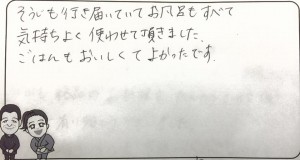 そうじも行き届いていてお風呂もすべて
気持ちよく使わせて頂きました。
ごはんもおいしくてよかったです。